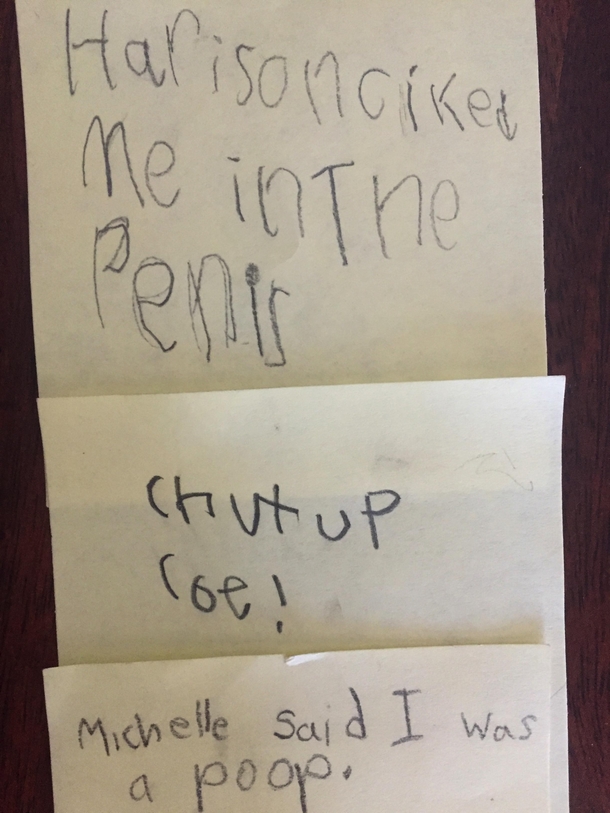 Harison ciked
Me in The
Penis
Chut up
Coe!
Michelle said I was
a poop.